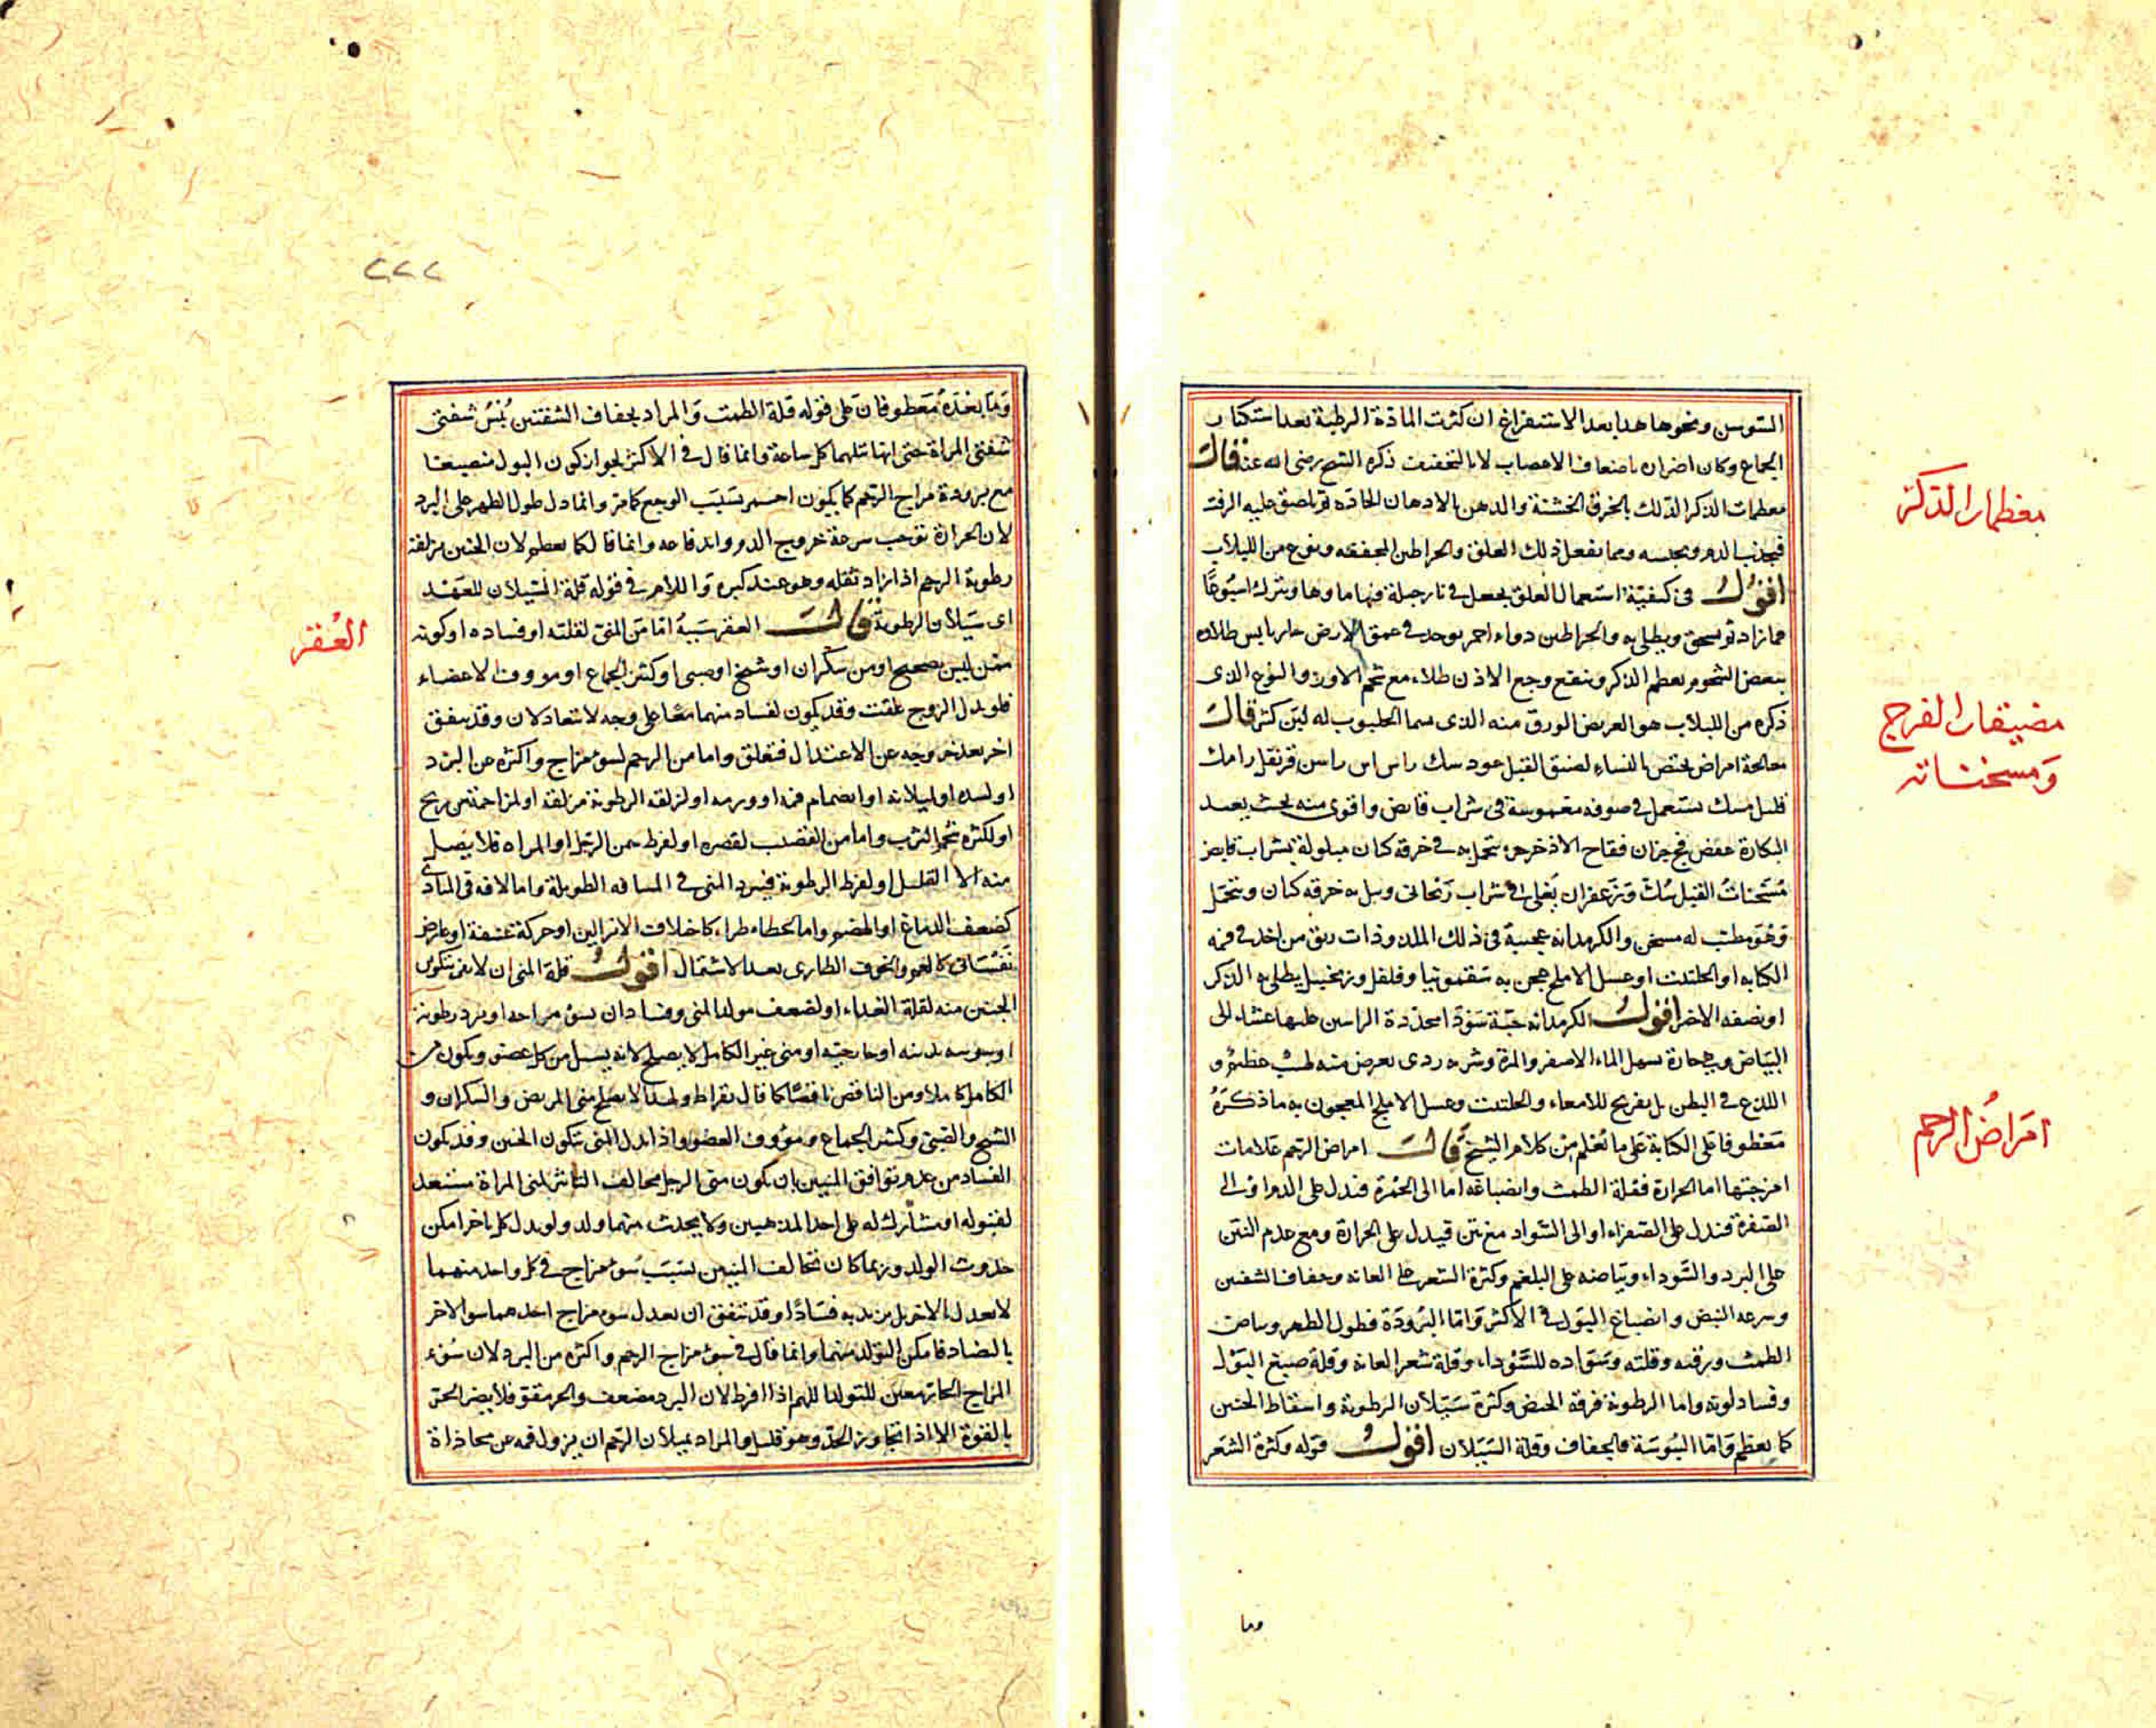 السوسن ونحوها هذا بعد الاستفراغ ان كثرت المادة الرطبة بعد استكثار
الجماع وكان اضراره باضعاف الاعصاب لا بالتخفيف ذكره الشيخ رضى الله عنه قال
معظمات الذكر الدلك بالخرق الخشنة والدهن بالادهان الحاده ثم يلصق عليه الزفت
فيجذب الدم ويحبسه ومما يفعل ذلك العلق والخراطين المجففه ونوع من اللبلاب
اقول فى كيفية استعمال العلق يجعل فى نارجيلة فيها ماوها ويترك اسبوعا
فما زاد ثم يسحق ويطلى به والخراطين دواء احمر يوجد فى عمق الارض حار يابس طلاؤه
ببعض الشحوم يعظم الذكر وينفع وجع الاذن طلاء مع شحم الاوز والنوع الذى
ذكره من اللبلاب هو العريض الورق منه الذى سما الحلبوب له لبن كثير قال
معالجة امراض يختص بالنساء لضيق القبل عود سك راس اس راسن قرنفل رامك
قليل مسك يستعمل فى صوفه مغموسة فى شراب قابض واقوى منه بحيث يعيد
البكارة عفص فج جزان فقاح الاذخر جزء يتحمل به فى خرقة كتان مبلولة بشراب قابض
مسخنات القبل سك وزعفران يغلى فى شراب ريحانى ويبل به خرقه كتان ويتحمل
وهو مطيب له مسخن والكرمدانه عجيبة فى ذلك الملذذات ريق من اخذ فى فمه
الكبابه او الحلتيت او عسل الاملج عجن به سقمونيا وفلفل وزنجبيل يطلى به الذكر
او نصفه الاخر اقول الكرمدانه حبة سودا محددة الراسين عليها غشاء الى
البياض وهى حارة يسهل الماء الاصفر والمرة وشربه ردى يعرض منه لهيب عظيم و
اللذع فى البطن بل يقرح للامعاء والحلتيت وعسل الاملج المعجون به ما ذكره
معطوفا على الكبابة على ما يُعلم من كلام الشيخ قال امراض الرحم علامات
امزجتها اما الحرارة فقلة الطمث وانصباغه اما الى الحمرة فيدل على الدم او الى
الصفرة فيدل على الصفراء او الى السواد مع نتن فيدل على الحرارة ومع عدم النتن
على البرد والسوداء وبياضه على البلغم وكثرة الشعر على العانه وجفاف الشفتين
وسرعه النبض وانصباغ البول فى الاكثر واما البرودة فطول الطهر وبياض
الطمث ورقته وقلته وسواده للسوداء وقلة شعر العانة وقلة صبغ البول
وفساد لونه واما الرطوبة فرقه الحيض وكثرة سيلان الرطوبة واسقاط الجنين
كما يعظم واما اليبوسة فالجفاف وقلة السيلان اقول قوله وكثرة الشعر
وما
معظمات الذكر
مضيقات الفرج
ومسخناته
امراض الرحم
٢٢٢
وما بعده معطوفان على قوله قلة الطمث والمراد بجفاف الشفتين يُبس شفتى
شفتى المراة حتى انها تبلهما كل ساعة وانما قال فى الاكثر لجواز كون البول منصبغا
مع برودة مزاج الرحم كما يكون احمر بسبب الوجع كما مر وانما دل طول الطهر على البرد
لان الحرارة توجب سرعة خروج الدم واندفاعه وانما قال كما يعظم لان الجنين يزلقه
رطوبة الرحم اذا زاد ثقله وهو عند كبره واللام فى قوله قلة السيلان للعهد
اى سيلان الرطوبة قال العقر سببه اما من المنى لقلته او فساده او كونه
ممن ليس بصحيح او من سكران او شيخ او صبى او كثير الجماع او مووف الاعضاء
فلو بدل الزوج علقت وقد يكون لفساد منهما معا على وجه لا يتعادلان وقد يتفق
اخر بعد خروجه عن الاعتدال فتعلق واما من الرحم لسوء مزاج واكثره من البرد
او لسده او ليلانه او انضمام فمه او ورمه او لزلقه الرطوبة مزلقه او لمزاحمة من ريح
او لكثره شحم الثرب واما من القضيب لقصره او لفرط سمن الرجل او المراه فلا يصل
منه الا القليل او لفرط الرطوبة فيبرد المنى فى المسافه الطويلة واما لافه فى المبادى
كضعف الدماغ او الهضم واما لخطاء طراء كاختلاف الانزالين او حركة عنيفة او عارض
نفسانى كالغم والخوف الطارى بعد الاشتمال اقول قلة المنى ان لا يفى بتكون
الجنين منه لقلة الغذاء او لضعف مولد المنى وفسادان بسوء مزاجه او برد رطوبة
او يبوسه بدنه او حاريته او منى غير الكامل لا يصلح لانه يسيل من كل عضو ويكون من
الكامل كاملا ومن الناقص ناقصا كما قال بقراط ولهذا لا يصلح منى المريض والسكران و
الشيخ والصبى وكثير الجماع ومؤوف العضو واذا بدل المنى يتكون الجنين وقد يكون
الفساد من عدم توافق المنيين بان يكون منى الرجل مخالف التاثير لمنى المراة مستعد
لقبوله او مشارك له على احد المذهبين ولا يحدث منهما ولد ولو بدل كل باخر امكن
حدوث الولد وربما كان تخالف المنيين بسبب سوء مزاج فى كل واحد منهما
لا يعدل الاخر بل يزيد به فسادا وقد يتفق ان يعدل سوء مزاج احدهما سو الاخر
بالتضاد فامكن التولد منهما وانما قال فى سوء مزاج الرحم واكثره من البرد لان سوء
المزاج الحار معين للتولد اللهم اذا افرط لان البرد مضعف والحر مقو فلا يضر الحر
بالقوة الا اذا تجاوز الحد وهو قليل والمراد بميلان الرحم ان يزول فمه عن محاذاة
العُقر